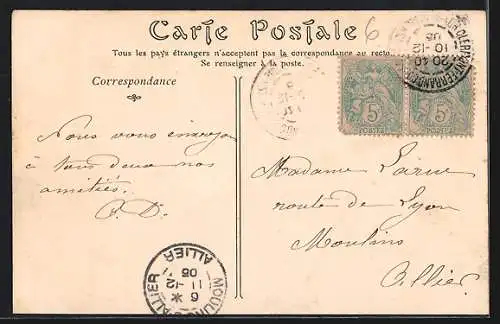 Carte Postale
6
Tous les pays étrangers n'acceptent pas la correspondance au recto.
Se renseigner à la poste.
Correspondance
CLERMONT-FERRAND
20 40
10-12
05
5 5
POSTES POSTES
Nous vous envoyons
à tous deux nos
amitiés.
Madame
route de Lyon
Moulins
Allier
MOULINS ALLIER
6 *
11-12
05
ALLIER